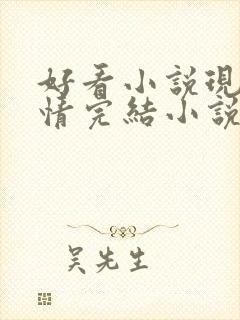 好看小說現
情完結小說
吳先生